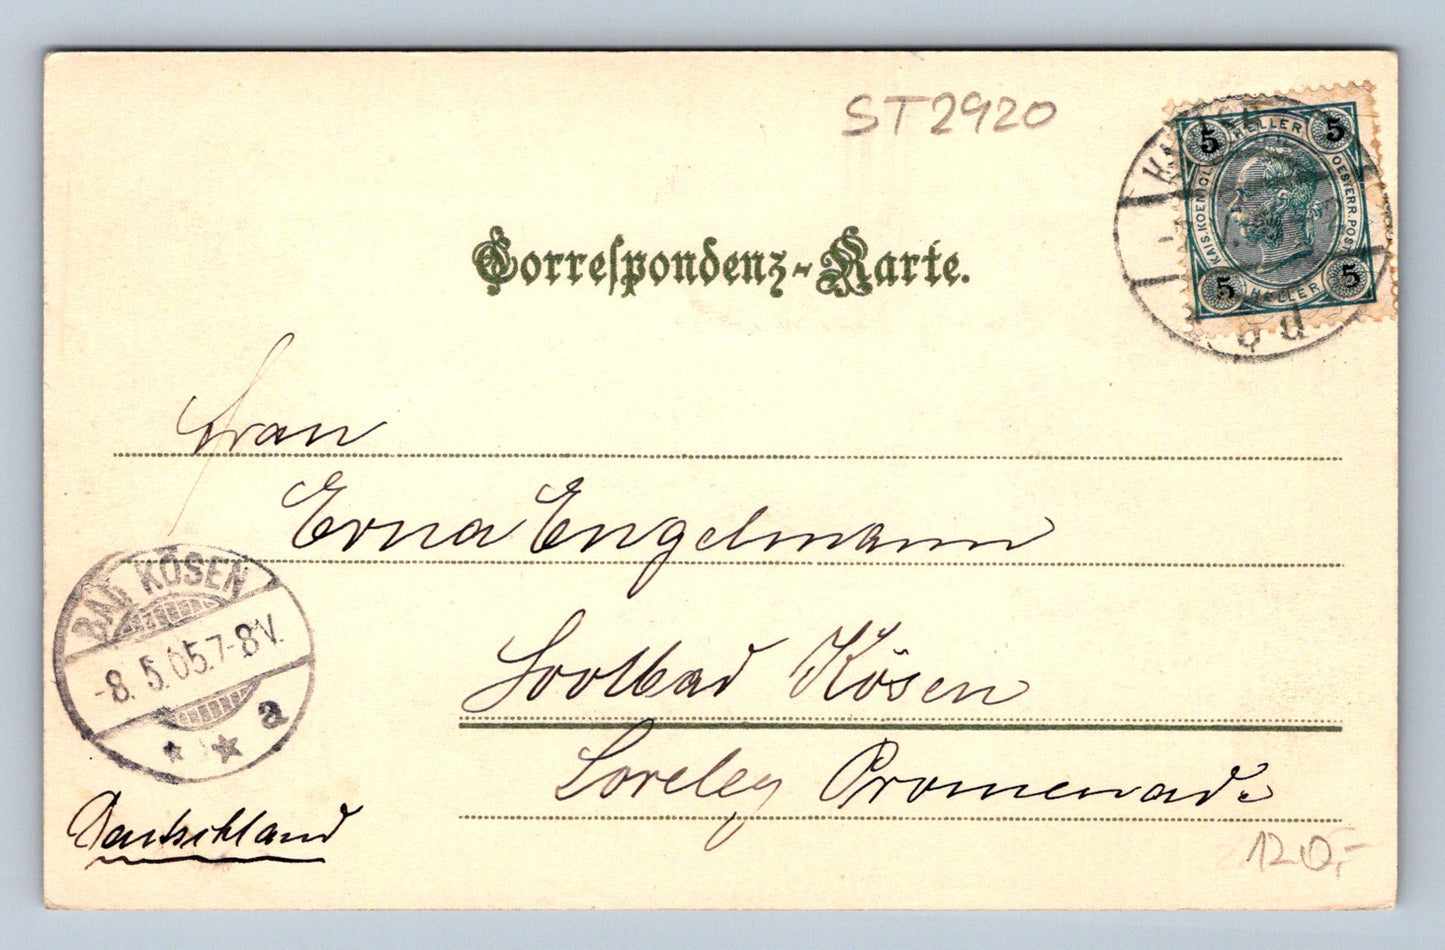 ST2920
5 HELLER 5
KAIS. KOENIGL. OESTERR. POST
5 HELLER 5
d
Correspondenz-Karte.
Frau
Erna Engelmann
BAD KÖSEN
-8.5.05.7-8V.
a
Soolbad Kösen
Loreley Promenade
Deutschland
120,-